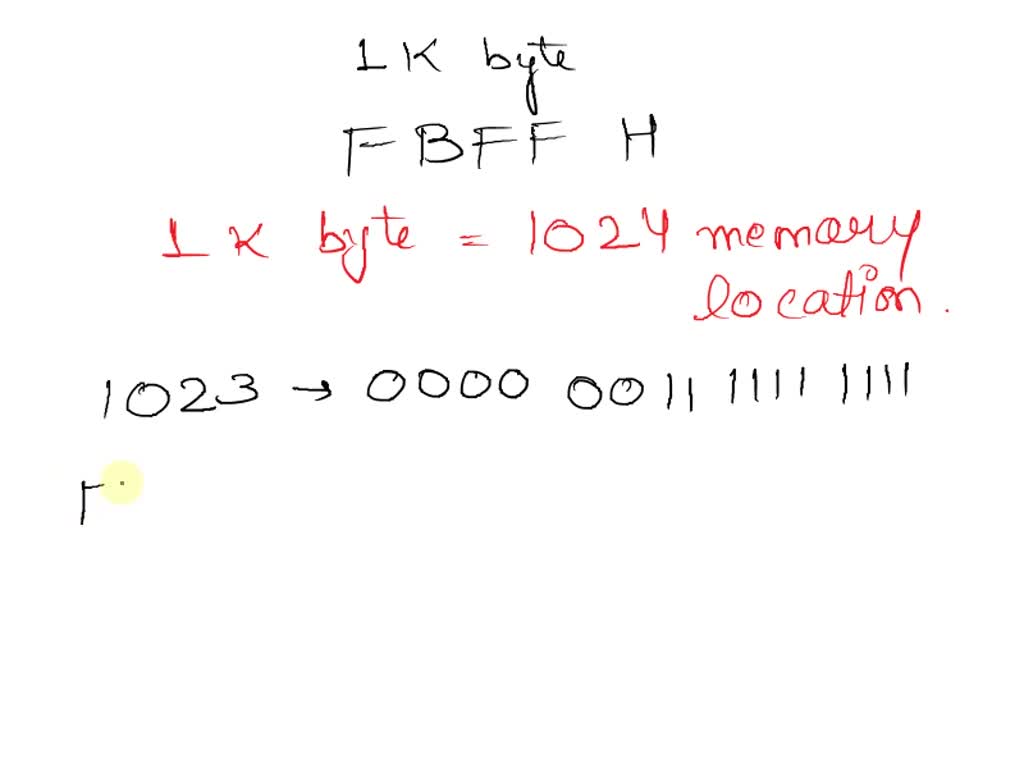 1 K byte
F B F F H
1 K byte = 1024 memory
location.
1023 → 0000 0011 1111 1111